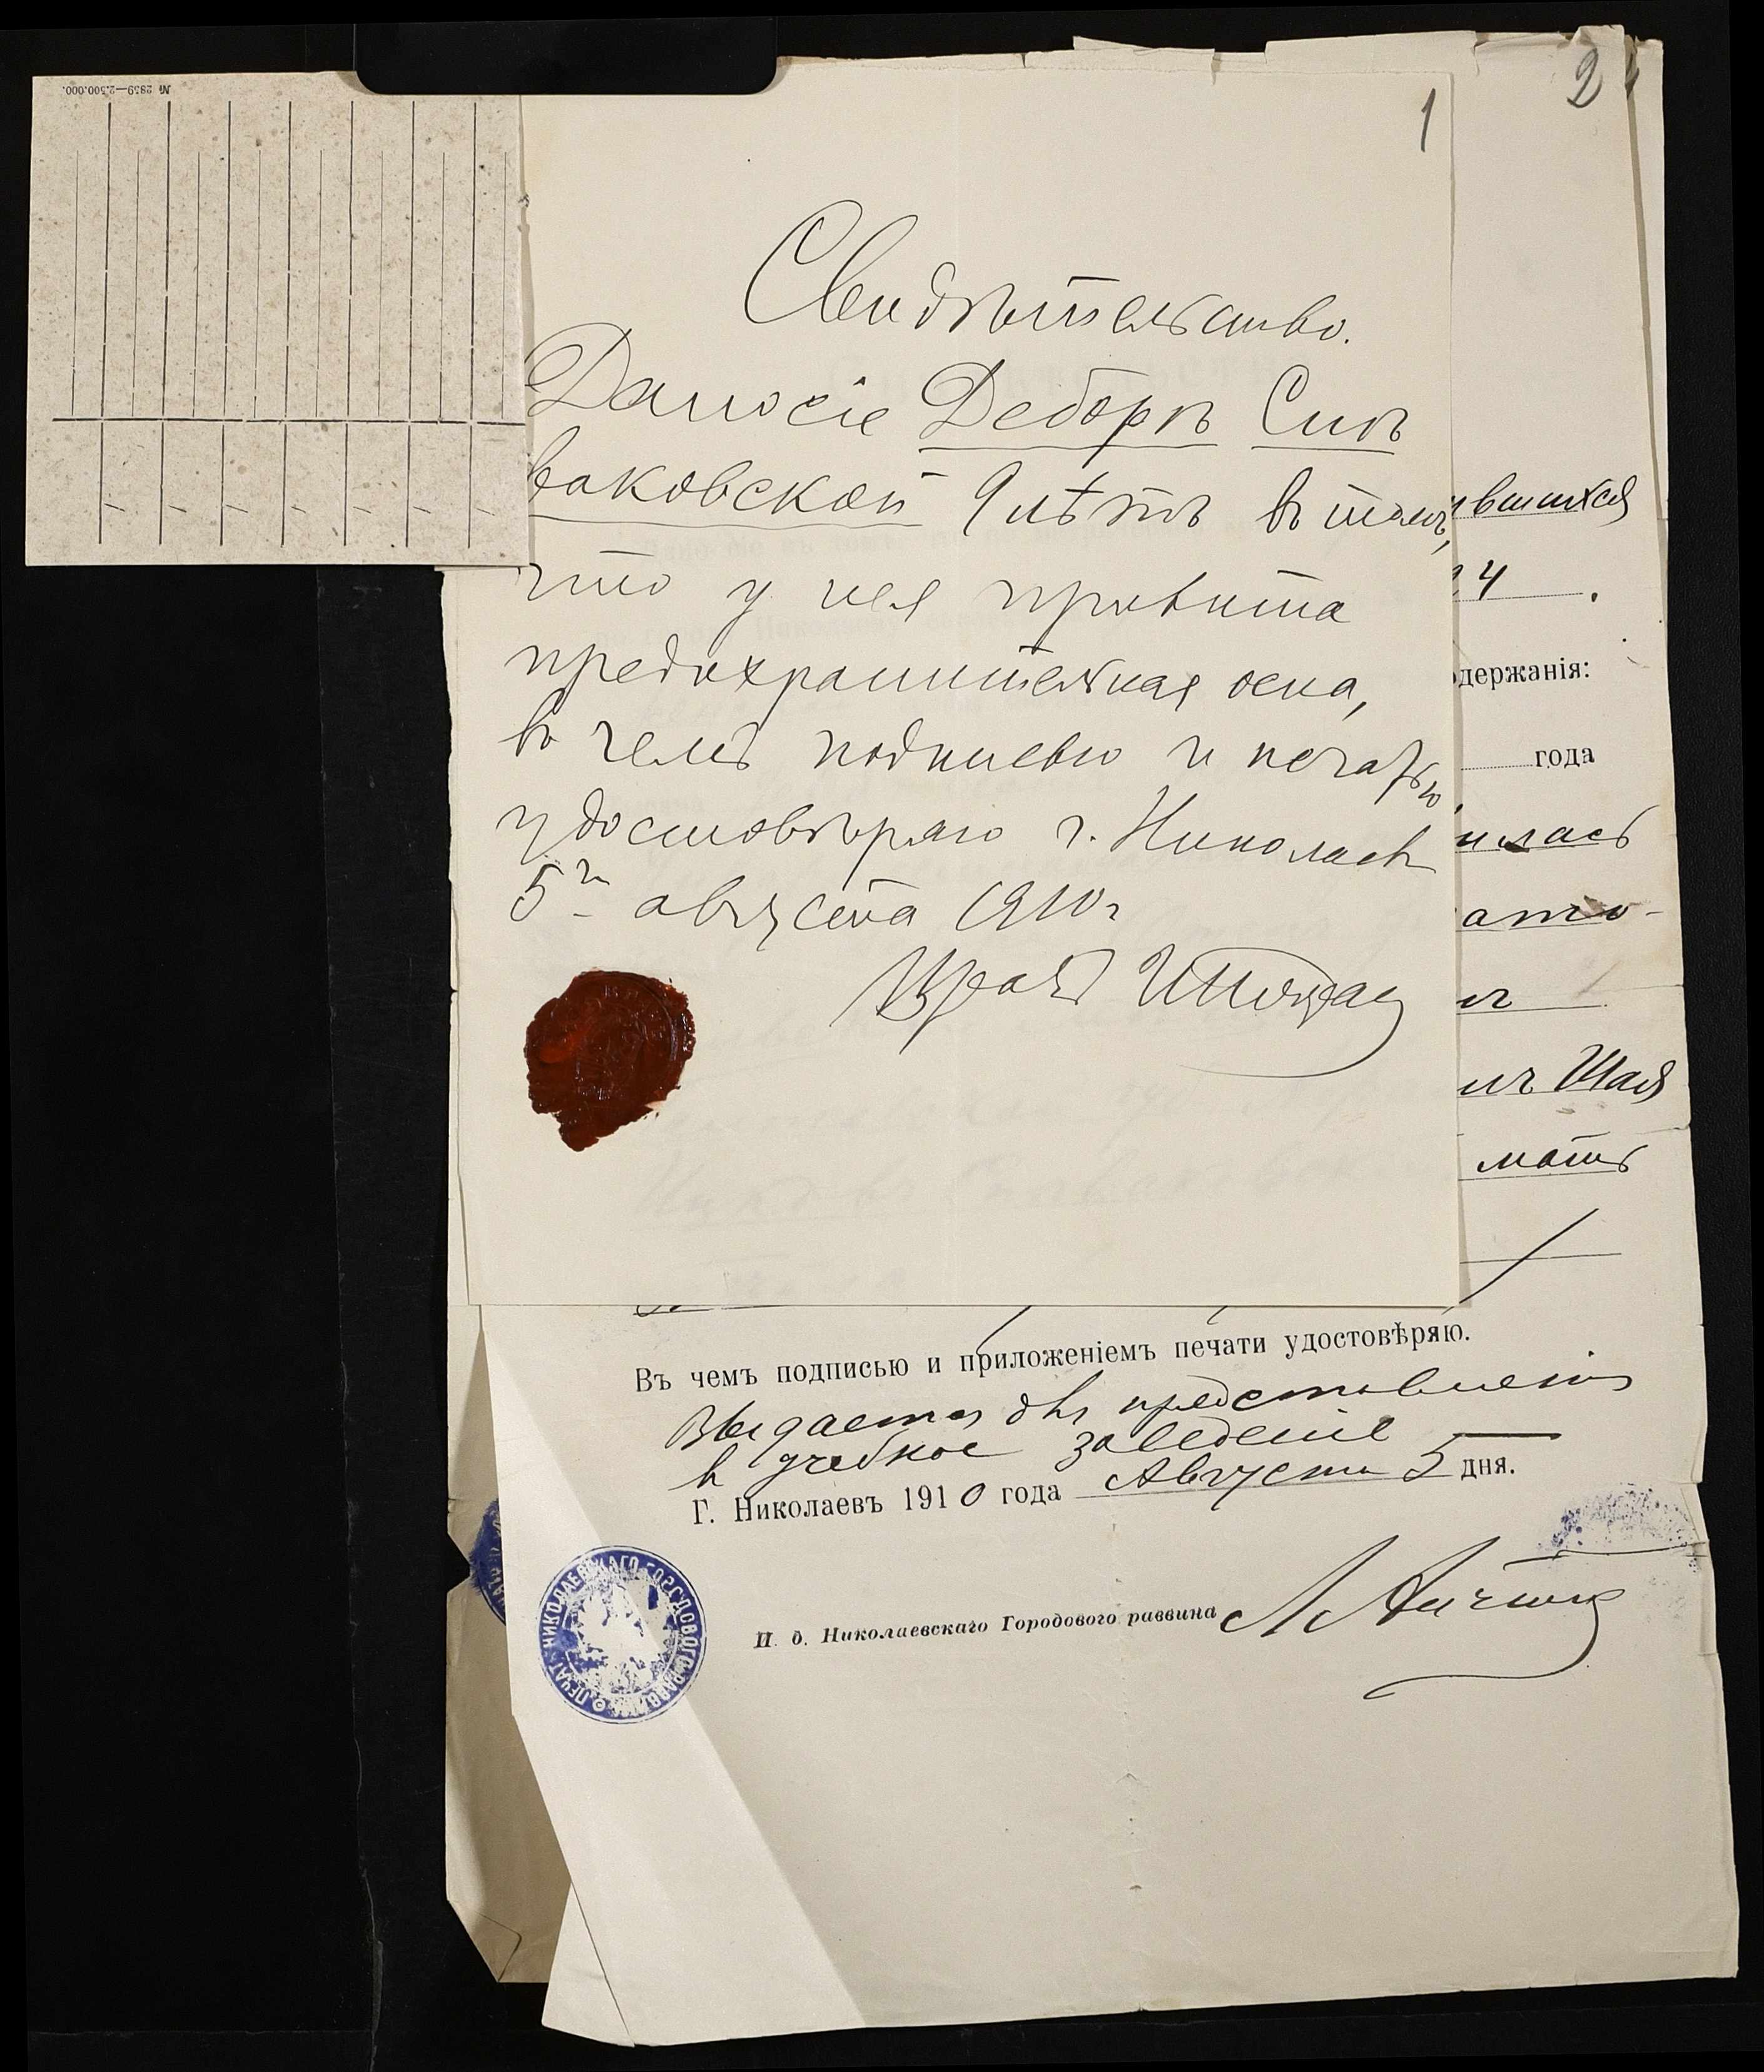 № 2859—2.500.000.
24
1
Свидѣтельство.
Дано сіе Деборѣ Спи
ваковской 9 лѣтъ в томъ,
что у нея привита
предохранительная оспа,
в чемъ подписью и печатью
удостовѣряю г. Николаевъ
5го августа 1910 г
Врачъ
вшихся
4 .
одержанія:
года
илась
мъ Шая
мать
Въ чемъ подписью и приложеніемъ печати удостовѣряю.
Выдается для представленія
в учебное заведеніе
Г. Николаевъ 1910 года Августа 5 дня.
И. д. Николаевскаго Городового раввина
ПЕЧАТЬ НИКОЛАЕВСКАГО ГОРОДОВОГО РАВВИНА